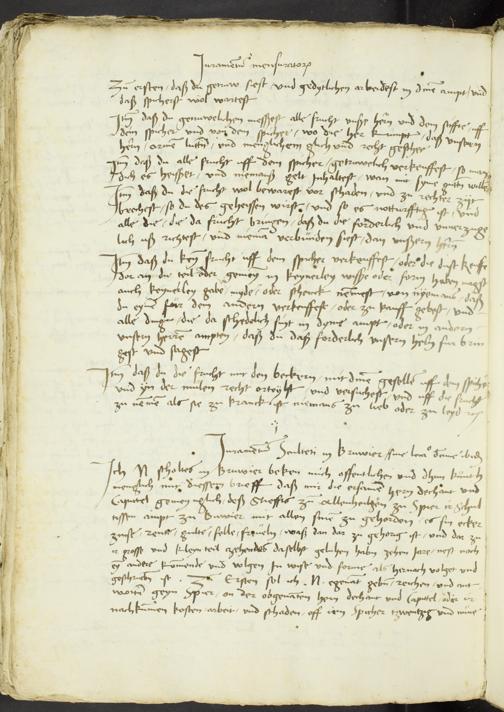 Juramentum mensuratoris
Zu ersten, daß du getruw siest, und gedytlichen arbeidest in dime ampt, und
daß spichers wol wartest
Item daß du getruwelichen messest alle frucht unßer hern und dem stiffte, uff
dem spicher und von dem spicher, wo die her kumpt, daß unsern
hern, armen luten, und menglichem glich und recht geschee
Item daß du alle frucht uff dem spicher, getruwelich verkeuffest, so man
dich es heisset, und niemans gelt inhaltest, wan mit syme guten willen
Item daß du die frucht wol bewarest vor schaden, und zu rechter zijt
brechest, so du des geheissen wirst, und so es notturfftig ist, und
alle die, die da frucht bringen, daß du die forderlich und unverzuge
lich uß richtest, und nieman verbunden siest, dan unßern hern
Item daß du key frucht uff dem spicher verkeuffest, oder die dust keuffen
dar an du teil oder gemeyn in keynerley wijse oder form haben mogst
auch keynerley gabe, myde, oder schenck nemest, von nyemans, daß
du eym fur dem andern verkeuffest, oder zu kauff gebest, und
alle dinge, die da schedelich sint in dyme ampt, oder in andern
unsern herren ampten, daß du daß forderlich unsern hern fur brin
gest und sagest
Item daß du die frucht mit den beckern, mit dime gesellen uff dem spicher
und yn der mulen recht orteylst, und versuchest, und uff die frucht
zu nemen als sie zu kranck ist niemans zu lieb oder zu leyd
Juramentum Sculteti in Bruwier, sive
Ich N scholtes in Bruwier beken mich offentlichen und dhun kunt
menglich mit diessem brieff, daß mir die ersamen hern dechant und
Capittel gemeynlich deß Stieffts zu allenheilgen zu Spier ir Schul
tissen ampt zu Bruwier mit allen sinen zu gehorden, es sin ecker
zinß, rente, gulte, felle, freveln, waß dan dar zu gehorig ist, und dar zu
ir groß und klein teil zehenden daselbst gelihen habn zehen jare, nest nach
ey ander kummende und volgen, In wijse und forme, als hernach volget und
geschriben ist. Zum Ersten sol ich N. egenant geben, reichen, und ant
worten geyn Spier, on der obgenanten hern dechant und Capittel, oder ir
nachkummen kosten, arbeit, und schaden, off iren Spicher zwentzig und